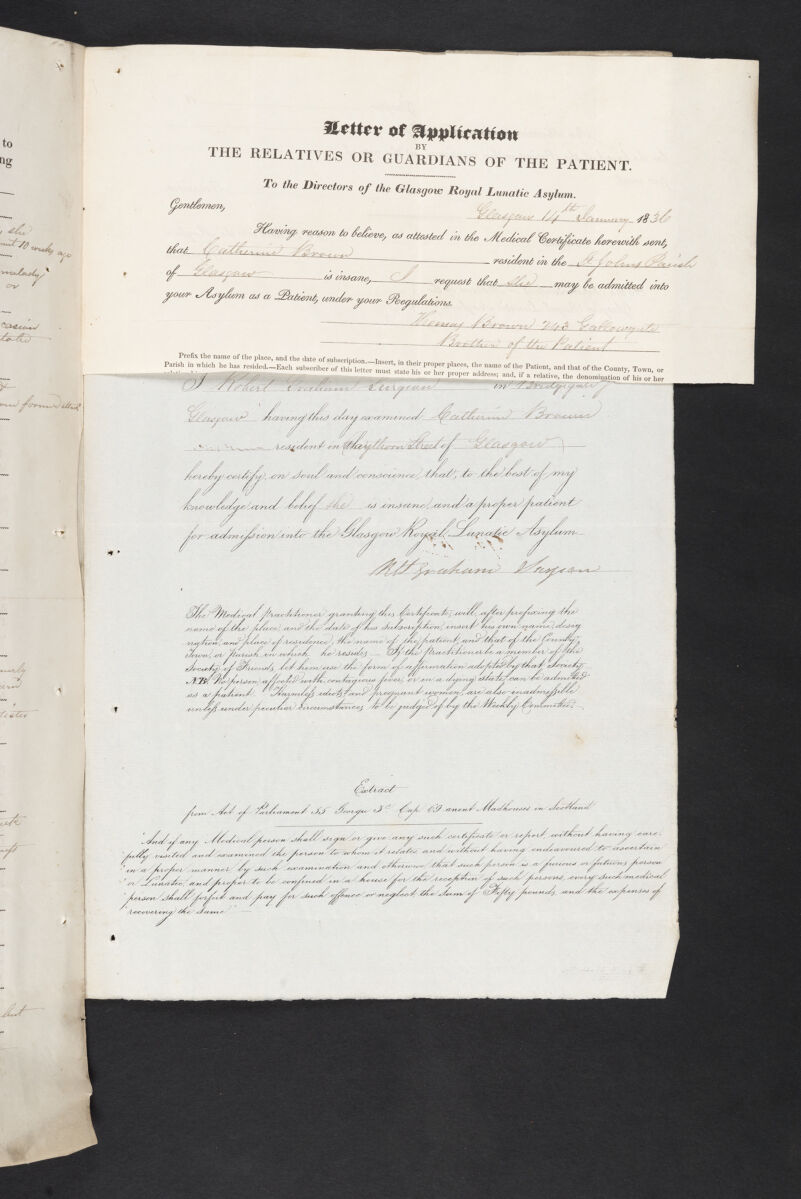 to
ng
, she
out 10 weeks ago
malady
or
casion
state
Letter of Application
BY
THE RELATIVES OR GUARDIANS OF THE PATIENT.
To the Directors of the Glasgow Royal Lunatic Asylum.
Gentlemen,
Glasgow 14th January 1836
Having reason to believe, as attested in the Medical Certificate herewith sent,
that Catherine Brown resident in the St Johns Parish
of Glasgow is insane, I request that she may be admitted into
your Asylum as a Patient, under your Regulations.
Thomas Brown 243 Gallowgate
Brother of the Patient
Prefix the name of the place, and the date of subscription.—Insert, in their proper places, the name of the Patient, and that of the County, Town, or
Parish in which he has resided.—Each subscriber of this letter must state his or her proper address; and, if a relative, the denomination of his or her
I Robert Graham Surgeon in Bridgegate of
Glasgow having this day examined Catherine Brown
resident in Street of Glasgow
hereby certify, on soul and conscience, that, to the best of my
knowledge and belief she is insane, and a proper patient
for admission into the Glasgow Royal Lunatic Asylum
Rt Graham Surgeon
The Medical Practitioner granting this Certificate, will, after prefixing the
name of the place, and the date of his subscription, insert his own name, desig
nation, and place of residence, the name of the patient, and that of the County,
Town, or Parish in which he resides.— If the Practitioner be a member of the
Society of Friends, let him use the form of affirmation adopted by that Society.
NB. No person affected with contagious fever, or in a dying state, can be admitted
as a patient. Harmless idiots and pregnant women, are also inadmissible
unless under peculiar circumstances, to be judged of by the Weekly Committee.
Extract
from Act of Parliament 55 George 3d Cap. 69 anent Madhouses in Scotland
"And if any Medical person shall sign or give any such certificate or report, without having care-
"fully visited and examined the person to whom it relates and without having endeavoured to ascertain
"in a proper manner by such examination and otherwise that such person is a furious or fatuous person
"or Lunatic, and proper to be confined in a house for the reception of such persons, every such medical
person shall forfeit and pay for such offence or neglect, the sum of Fifty pounds, and the expenses of
recovering the same"
but